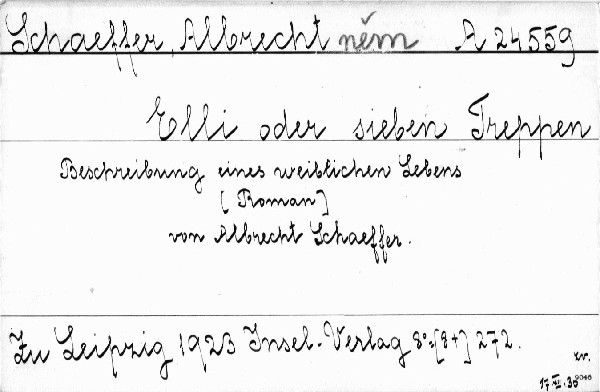 Schaeffer, Albrecht něm A 24559
Elli oder sieben Treppen
Beschreibung eines weiblichen Lebens
[Roman]
von Albrecht Schaeffer.
Zu Leipzig 1923 Insel-Verlag 8°=[8+] 272.